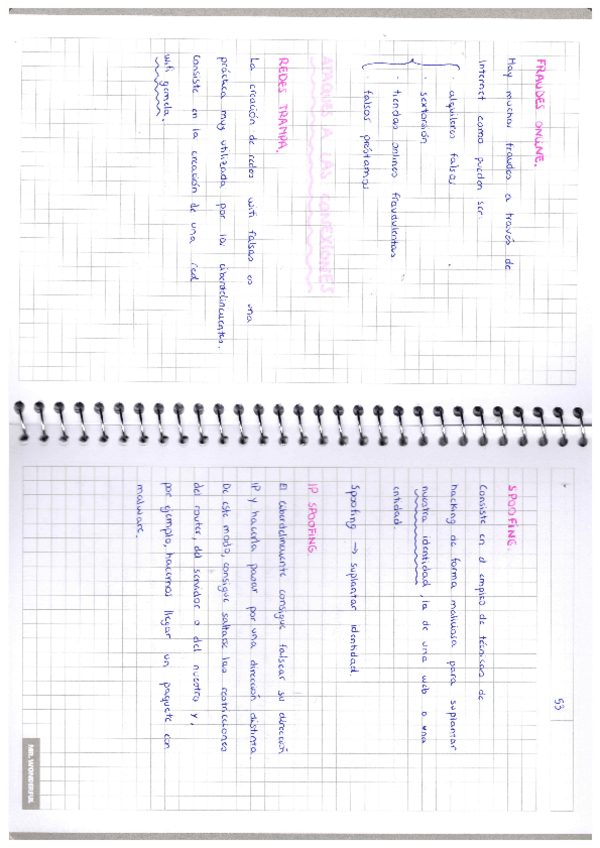 FRAUDES ONLINE.
Hay muchos fraudes a través de
Internet como pueden ser:
· alquileres falsos
· sextorsión
· tiendas onlines fraudulentas
· falsos préstamos
ATAQUES A LAS CONEXIONES
REDES TRAMPA.
La creación de redes wifi falsas es una
práctica muy utilizada por los ciberdelincuentes.
Consiste en la creación de una red
wifi gemela.
53
SPOOFING.
Consiste en el empleo de técnicas de
hacking de forma maliciosa para suplantar
nuestra identidad, la de una web o una
entidad.
Spoofing → suplantar identidad
IP SPOOFING.
El ciberdelincuente consigue falsear su dirección
IP y hacerla pasar por una dirección distinta.
De este modo, consigue saltarse las restricciones
del router, del servidor o del nuestro y,
por ejemplo, hacernos llegar un paquete con
malware.
MR. WONDERFUL